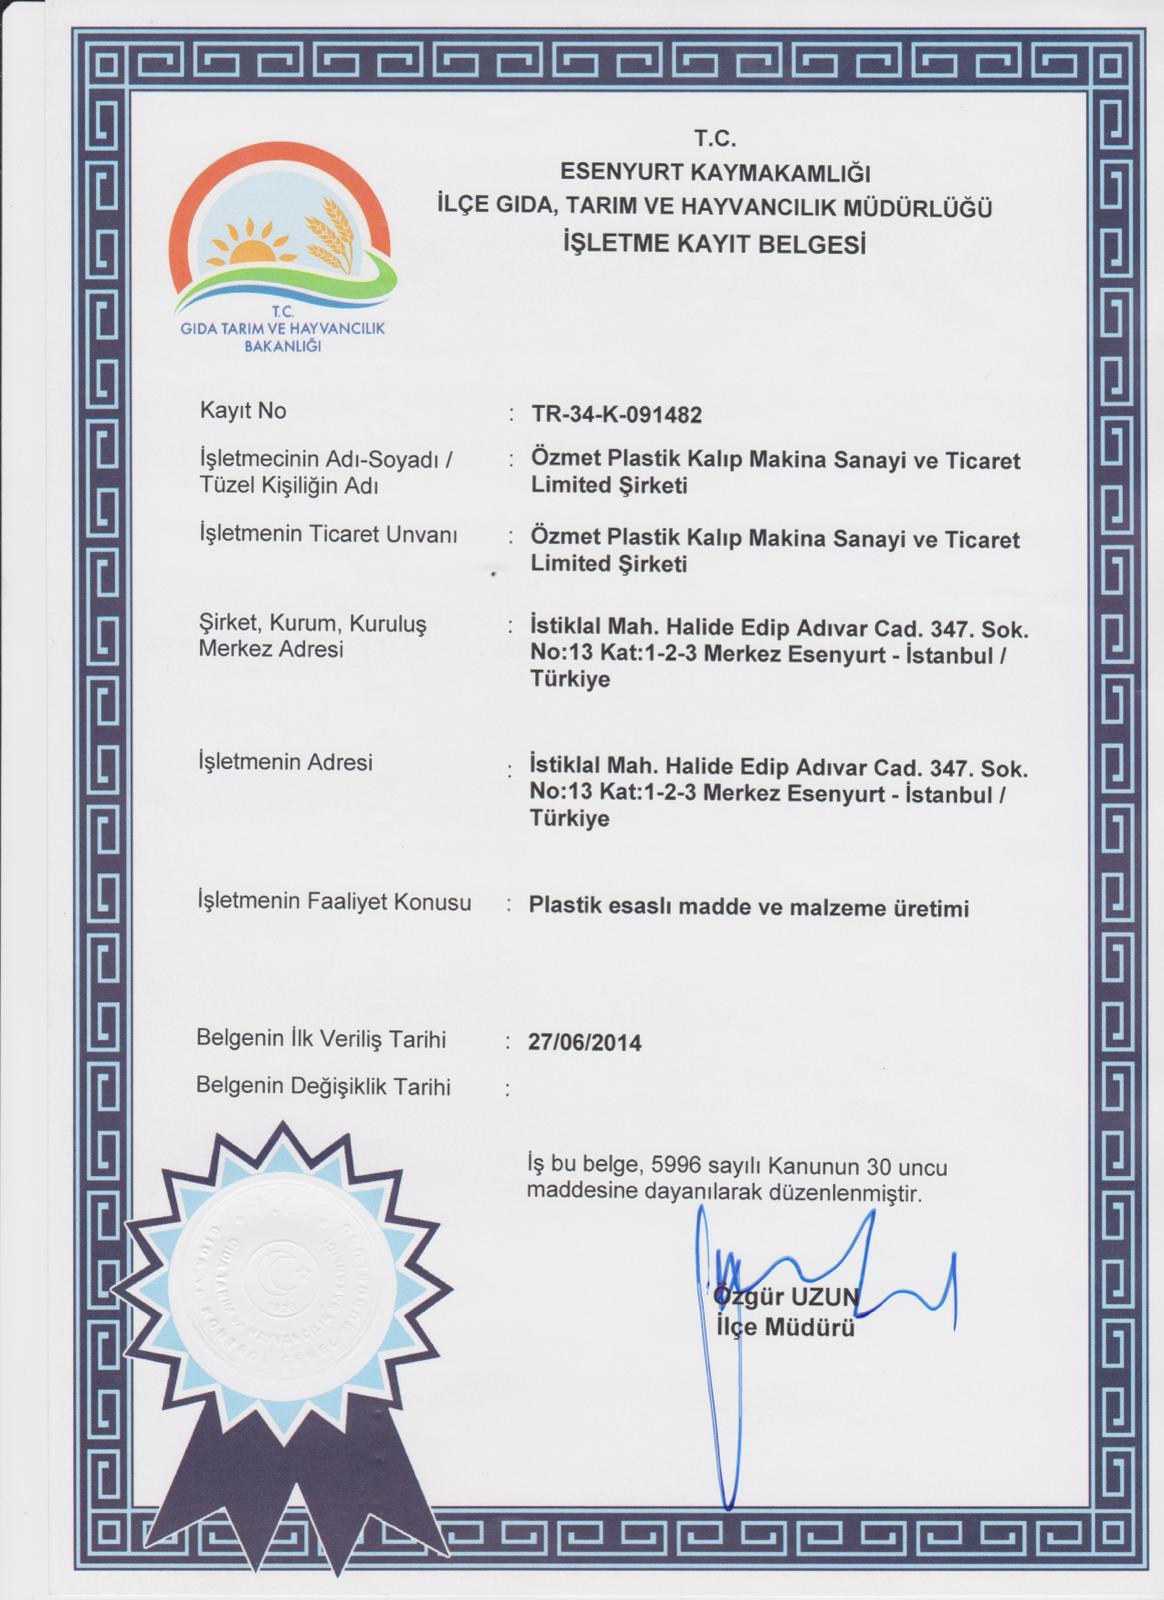 T.C.
ESENYURT KAYMAKAMLIĞI
İLÇE GIDA, TARIM VE HAYVANCILIK MÜDÜRLÜĞÜ
İŞLETME KAYIT BELGESİ
T.C.
GIDA TARIM VE HAYVANCILIK
BAKANLIĞI
Kayıt No : TR-34-K-091482
İşletmecinin Adı-Soyadı / : Özmet Plastik Kalıp Makina Sanayi ve Ticaret
Tüzel Kişiliğin Adı Limited Şirketi
İşletmenin Ticaret Unvanı : Özmet Plastik Kalıp Makina Sanayi ve Ticaret
Limited Şirketi
Şirket, Kurum, Kuruluş : İstiklal Mah. Halide Edip Adıvar Cad. 347. Sok.
Merkez Adresi No:13 Kat:1-2-3 Merkez Esenyurt - İstanbul /
Türkiye
İşletmenin Adresi : İstiklal Mah. Halide Edip Adıvar Cad. 347. Sok.
No:13 Kat:1-2-3 Merkez Esenyurt - İstanbul /
Türkiye
İşletmenin Faaliyet Konusu : Plastik esaslı madde ve malzeme üretimi
Belgenin İlk Veriliş Tarihi : 27/06/2014
Belgenin Değişiklik Tarihi :
İş bu belge, 5996 sayılı Kanunun 30 uncu
maddesine dayanılarak düzenlenmiştir.
Özgür UZUN
İlçe Müdürü